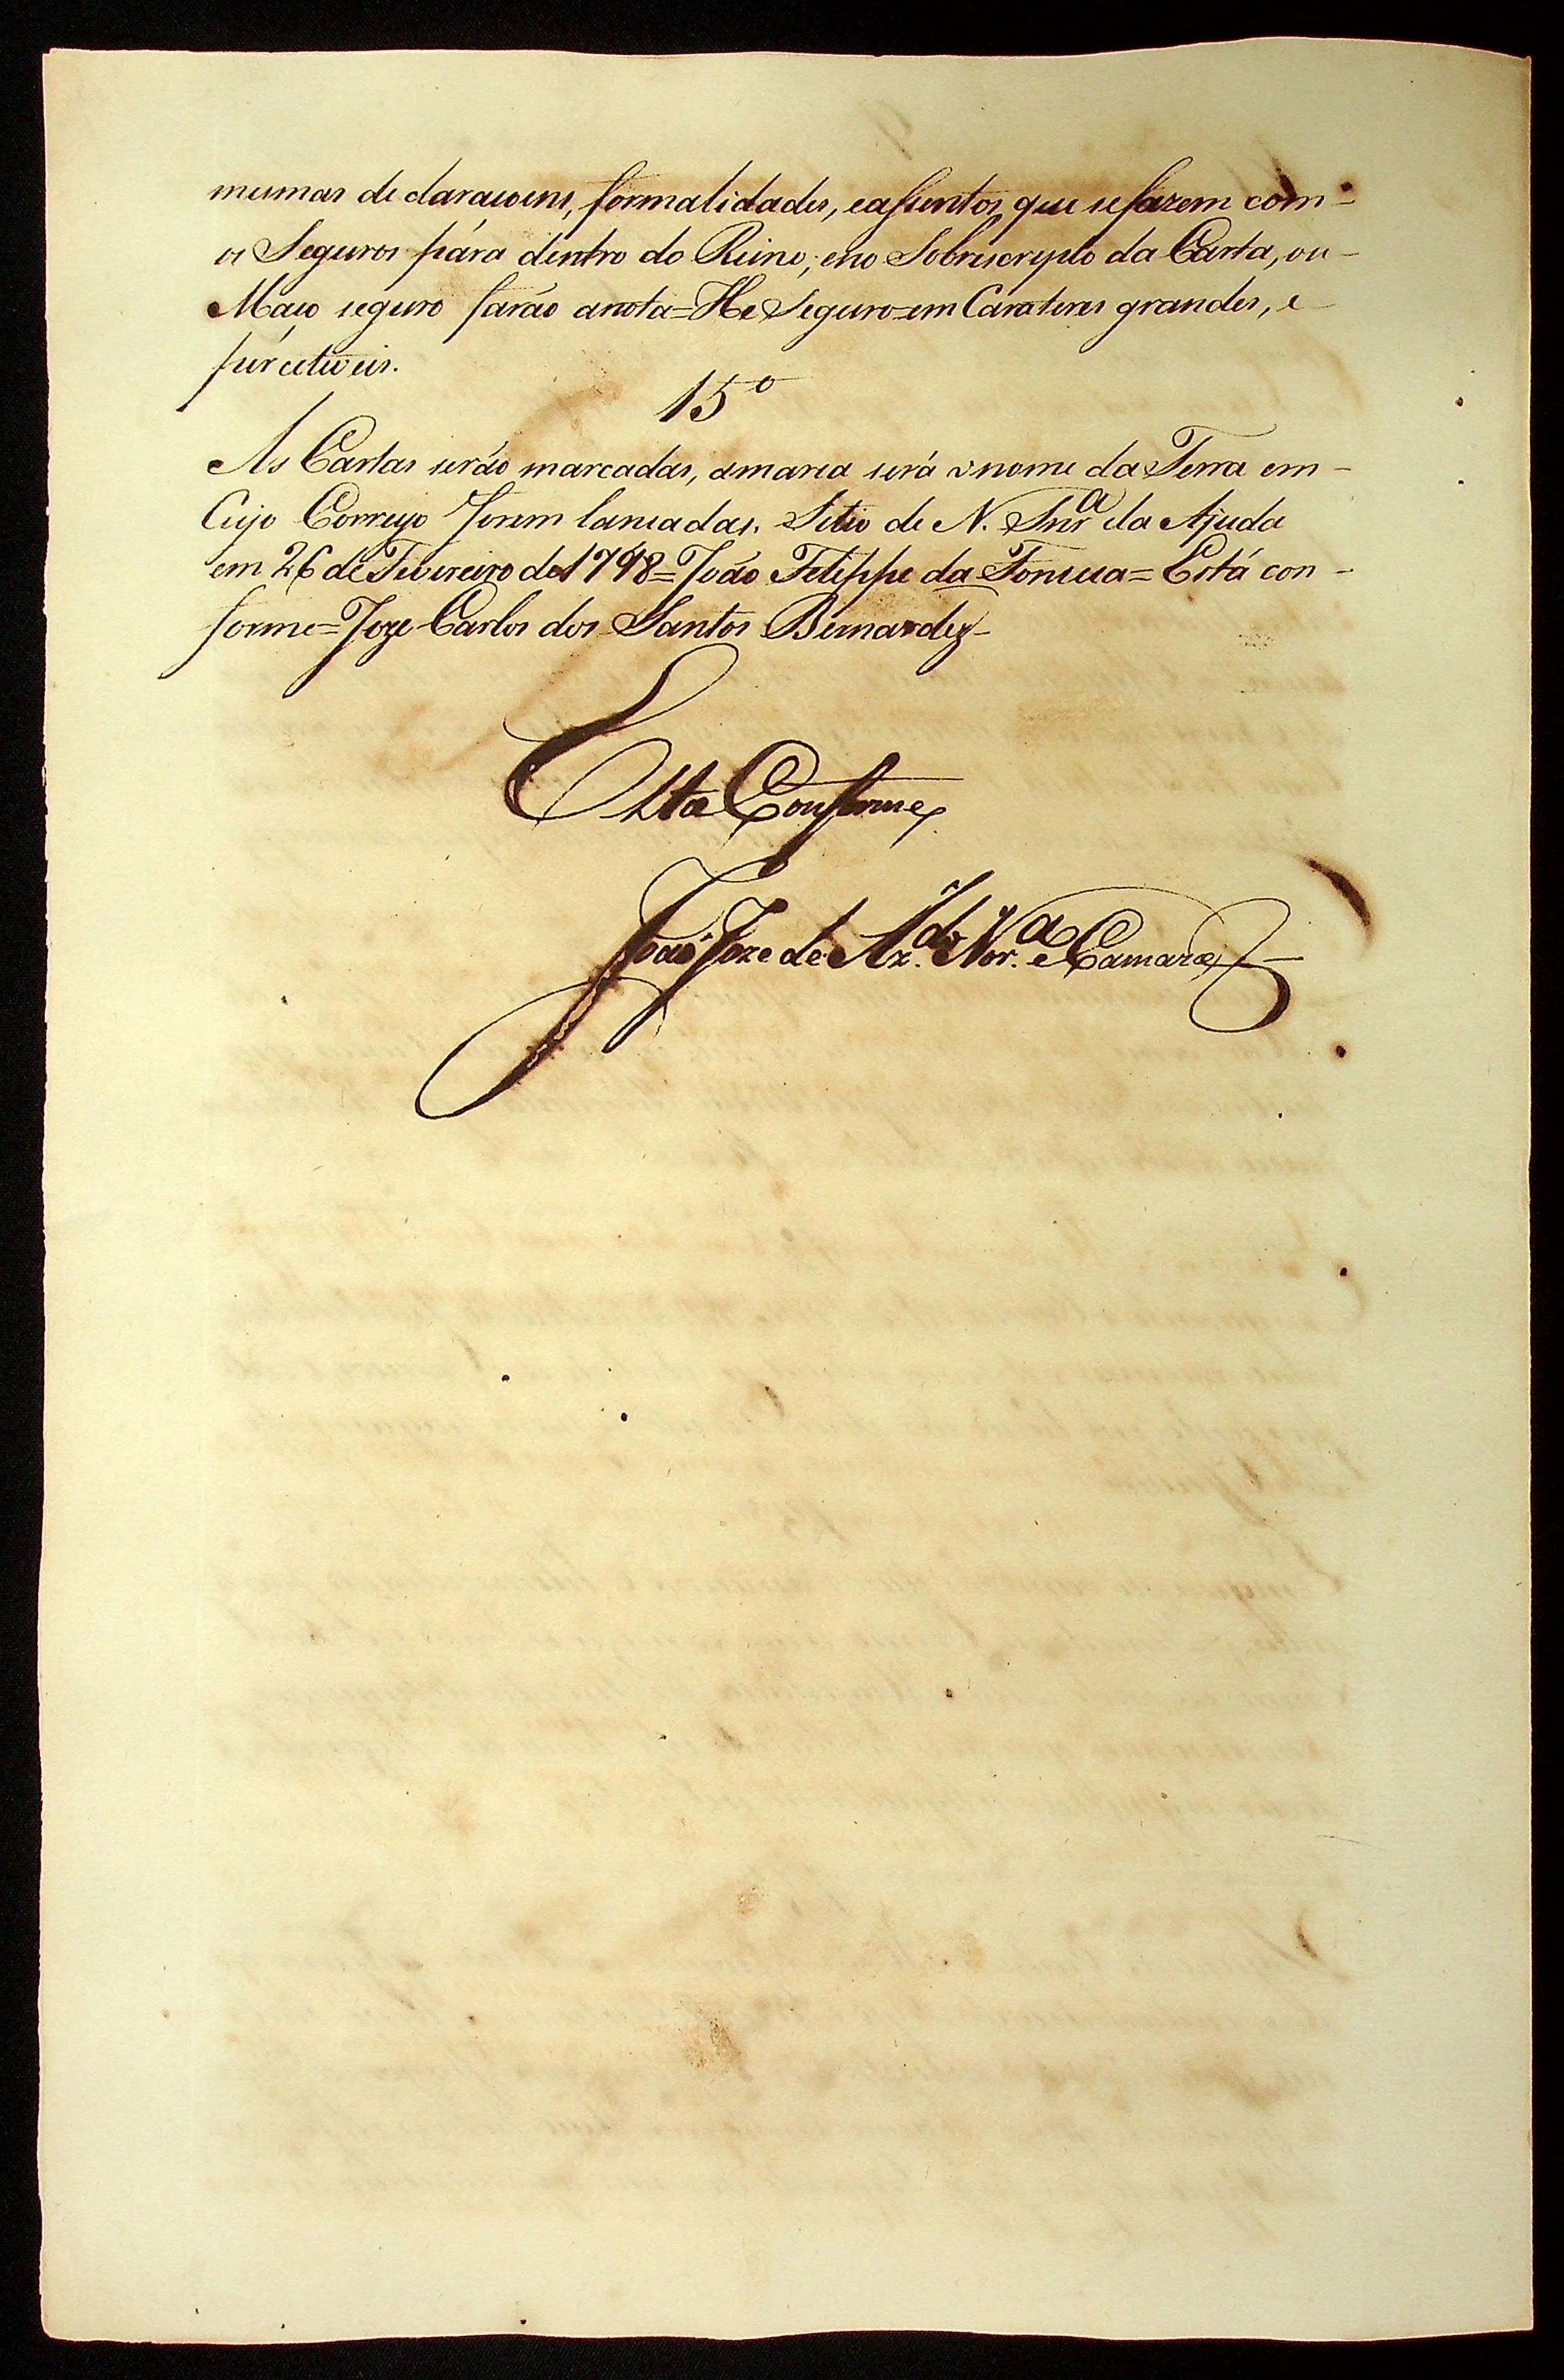 mesmas declaracoens, formalidades, eassentos que sefazem com-
os Seguros pára dentro do Reino; eno Sobrescripto da Carta, ou-
Maço seguro farão anota=He Seguro=em Carateres grandes, e
percetiveis.
15º
As Cartas serão marcadas, amarca será onome da Terra em-
Cujo Correyo forem lancadas. Sitio de N. Snrª da Ajuda
em 26 de Fevereiro de 1798=João Felippe da Fonseca=Está con-
forme=Joze Carlos dos Santos Bernardez-
Está Conforme
João Joze de Az.do Nor.ª e Camara